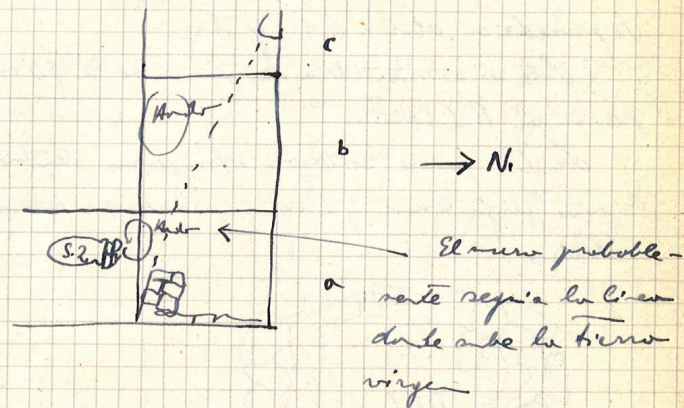 c
Hondo
b
→ N.
Hondo
El muro probable-
a
mente seguia la linea
donde sube la tierra
virgen